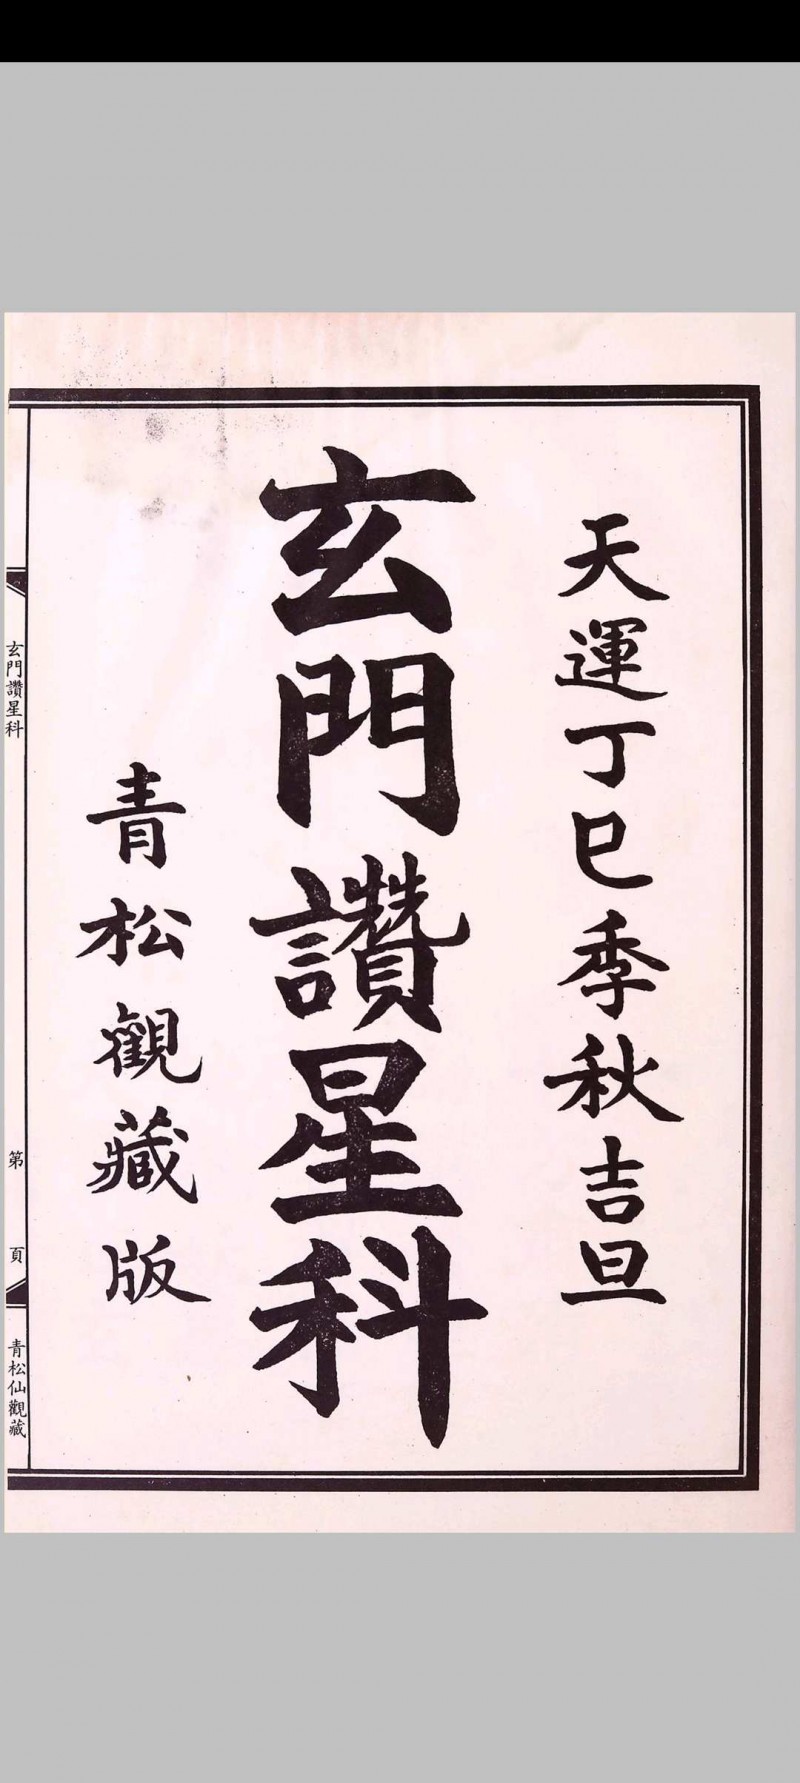 天運丁巳季秋吉旦
玄門讚星科
青松觀藏版
玄門讚星科
第
頁
青松仙觀藏